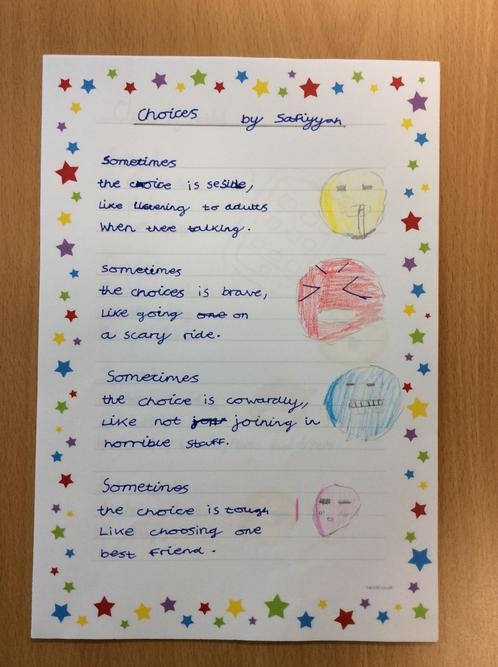 Choices by Safiyyah
Sometimes
the choice is
like listening to adults
When there talking.
Sometimes
the choices is brave,
Like going on
a scary ride.
Sometimes
the choice is cowardly,
Like not joining in
horrible stuff.
Sometimes
the choice is tough
Like choosing one
best friend.